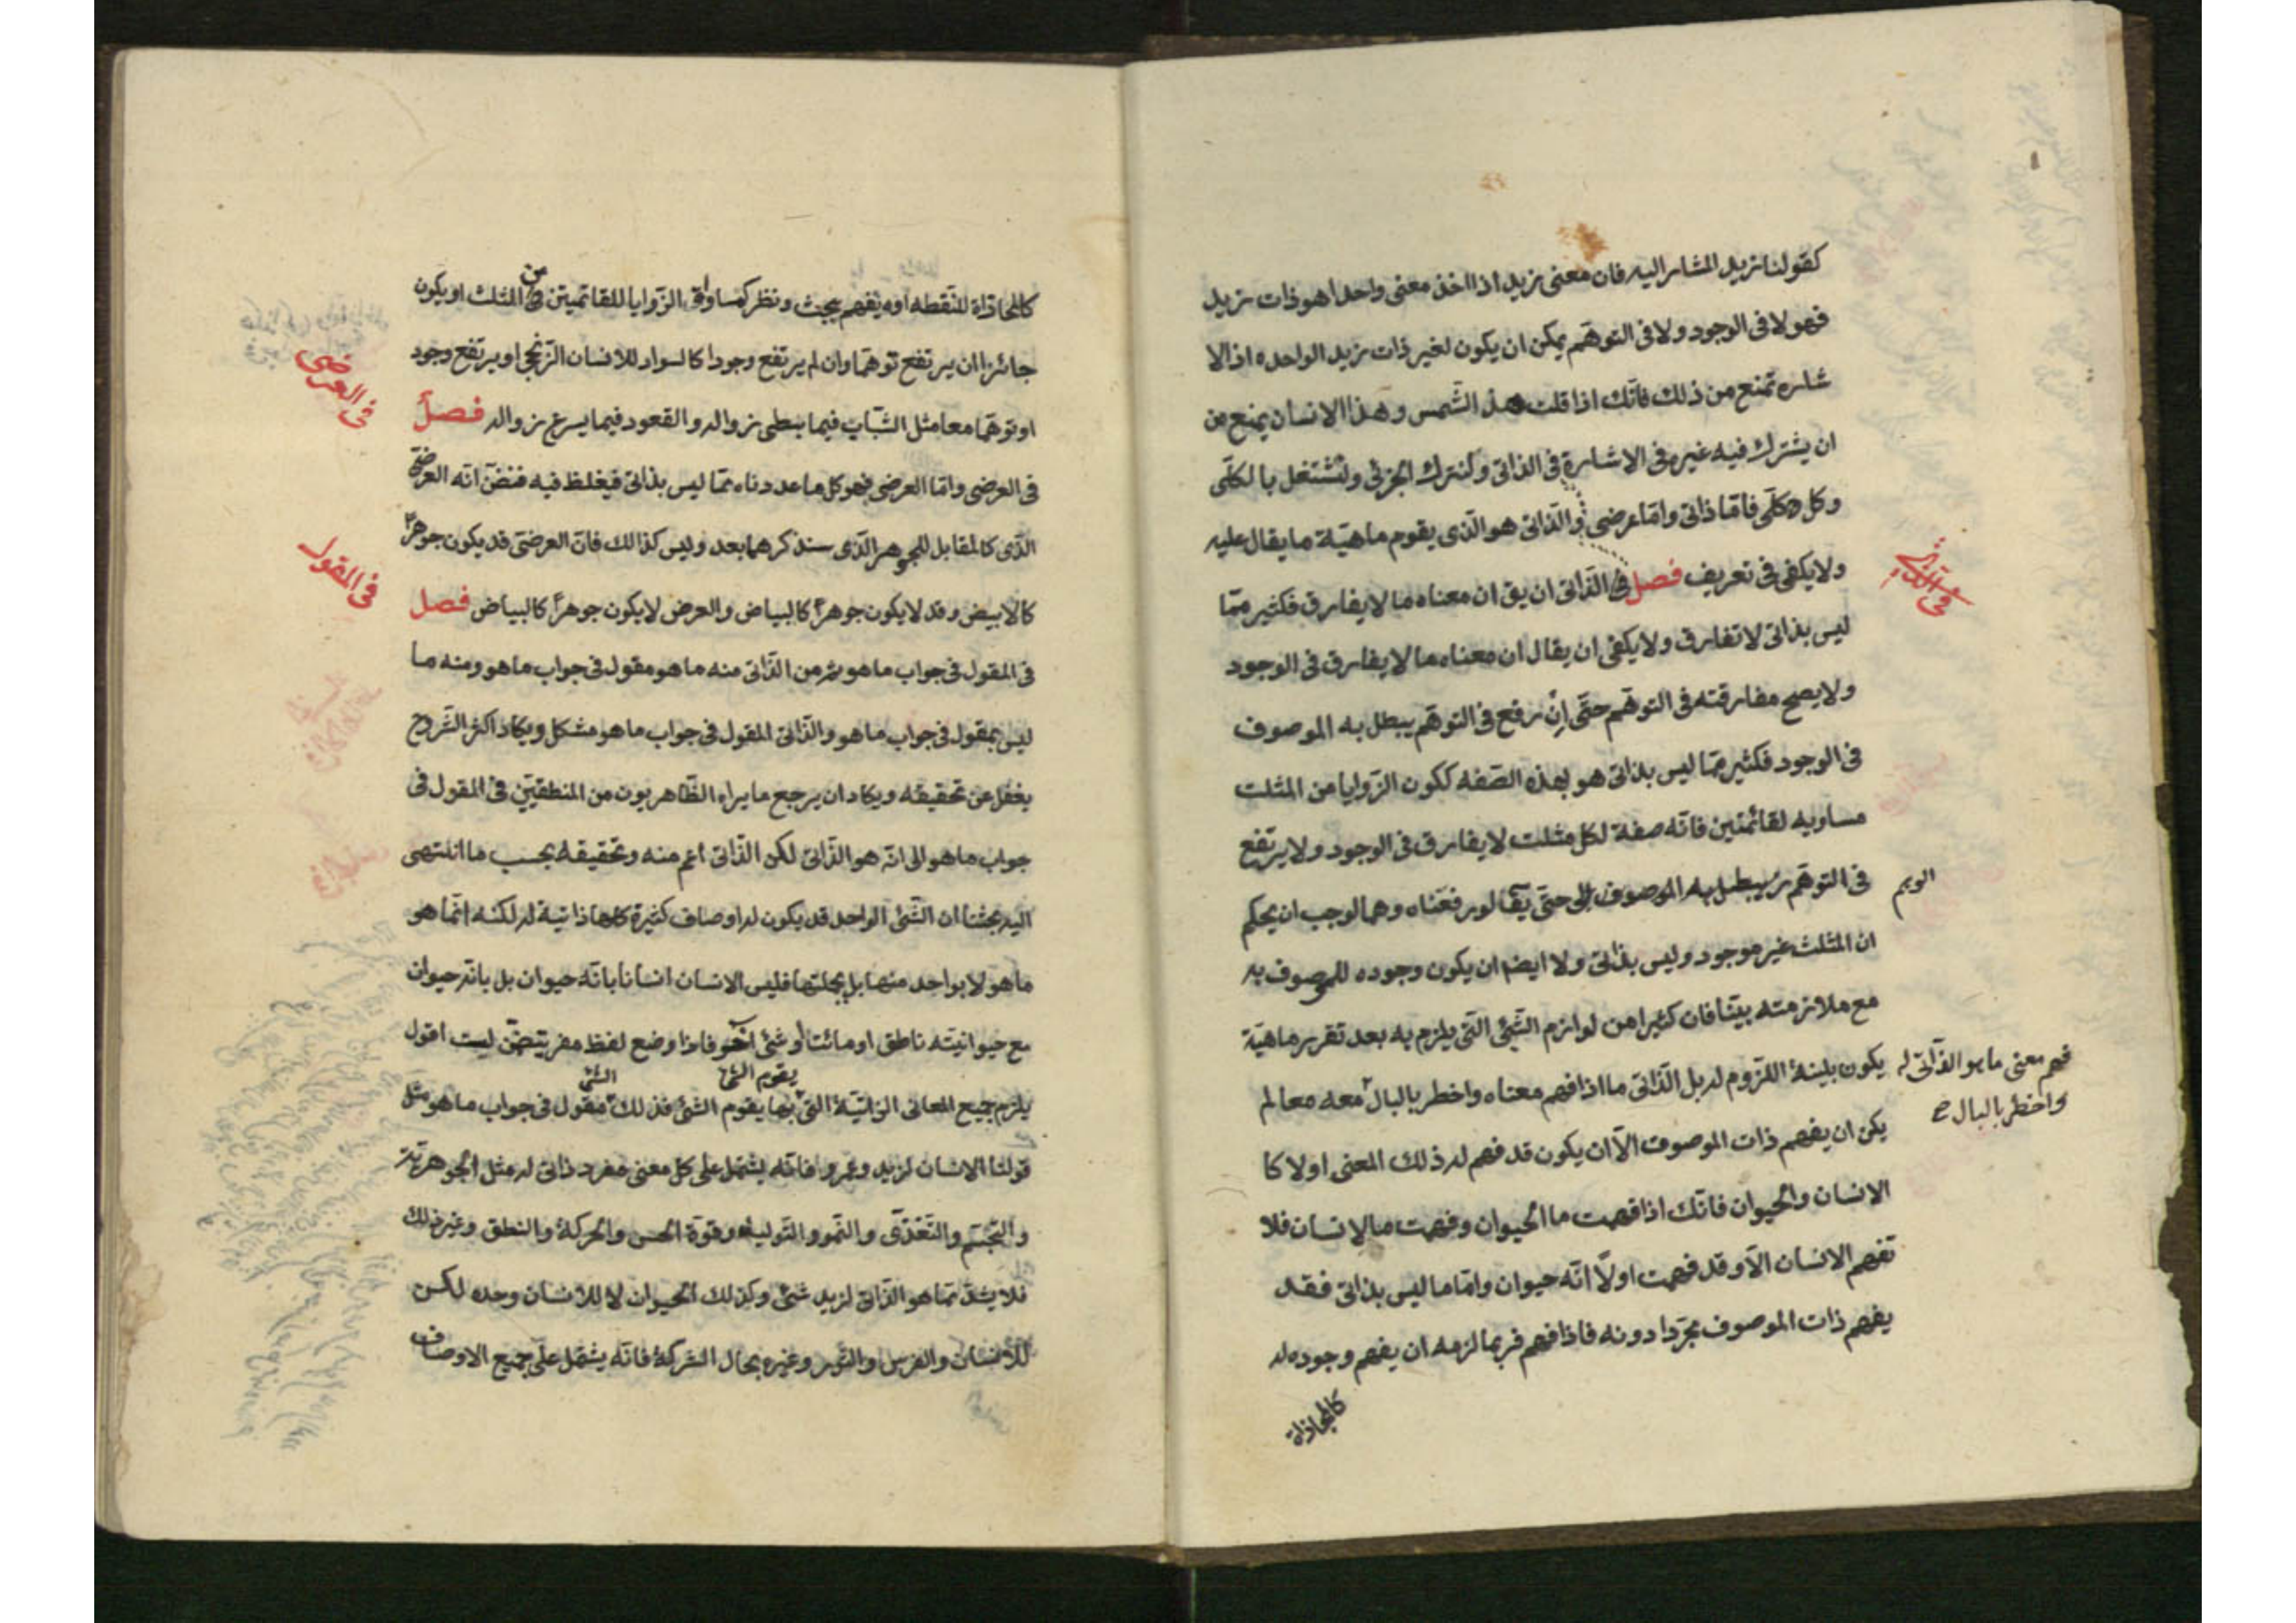 كقولنا زيد المشار اليه فان معنى زيد اذا اخذ معنى واحدا هو ذات زيد
فهو لا فى الوجود ولا فى التوهم يمكن ان يكون لغير ذات زيد الواحده اذ الا
شاره تمنع من ذلك فانك اذا قلت هذ الشمس وهذا الانسان يمنع من
ان يشترك فيه غيره فى الاشارة فى الذاتى ولنترك الجزئى ونشتغل بالكلى
وكل كلى فاما ذاتى واما عرضى والذاتى هو الذى يقوم ماهية ما يقال عليه
ولا يكفى فى تعريف فصل فى الذاتى ان يق ان معناه ما لا يفارق فكثير مما
ليس بذاتى لا تفارق ولا يكفى ان يقال ان معناه ما لا يفارق فى الوجود
ولا يصح مفارقته فى التوهم حتى ان رفع فى التوهم يبطل به الموصوف
فى الوجود فكثير مما ليس بذاتى هو بهذه الصفه ككون الزوايا من المثلث
مساويه لقائمتين فانه صفة لكل مثلث لا يفارق فى الوجود ولا يرتفع
فى التوهم يبطل به الموصوف حتى يقال لو رفعناه وهما لوجب ان يحكم
الوهم
ان المثلث غير موجود وليس بذاتى ولا ايضم ان يكون وجوده للموصوف به
مع ملازمته بينا فان كثيرا من لوازم الشئ التى يلزم به بعد تقرر ماهية
يكون بلينة اللزوم له بل الذاتى ما اذا فهم معناه واخطر بالبال معه معا لم
فهم معنى ما هو الذاتى له
واخطر بالبال
يكن ان يفهم ذات الموصوف الا ان يكون قد فهم له ذلك المعنى اولا كا
الانسان والحيوان فانك اذا فهمت ما الحيوان وفهمت ما الانسان فلا
تفهم الانسان الا وقد فهمت اولا انه حيوان واما ما ليس بذاتى فقد
يفهم ذات الموصوف مجردا دونه فاذا فهم فربما لزمه ان يفهم وجوده له
كالمحاذاة
كالمحاذاة للنقطه او يفهم ببحث ونظر كمساواة الزوايا للقائمتين من المثلث او يكون
جائزا ان يرتفع توهما وان لم يرتفع وجودا كالسواد للانسان الزنجى او يرتفع وجود
فى العرضى
او توهما معا مثل الشباب فيما يبطى زواله والقعود فيما يسرع زواله فصل
فى العرضى واما العرضى فهو كل ما عددناه مما ليس بذاتى فيغلط فيه فنضن انه العرض
الذى كالمقابل للجوهر الذى سنذكرهما بعد وليس كذالك فان العرضى قد يكون جوهرا
فى المقول
كالابيض وقد لا يكون جوهرا كالبياض والعرض لا يكون جوهرا كالبياض فصل
فى المقول فى جواب ما هو ثم من الذاتى منه ما هو مقول فى جواب ما هو ومنه ما
ليس بمقول فى جواب ما هو والذاتى المقول فى جواب ما هو مشكل ويكاد اكثر الشروح
يغفل عن تحقيقه ويكاد ان يرجع ما يراه الظاهريون من المنطقيين فى المقول فى
جواب ما هو الى انه هو الذاتى لكن الذاتى اعم منه وتحقيقه بحسب ما انتهى
اليه بحثنا ان الشئ الواحد قد يكون له اوصاف كثيرة كلها ذاتية له لكنه انما هو
ما هو لا بواحد منها بل بجملتها فليس الانسان انسانا بانه حيوان بل بانه حيوان
مع حيوانيته ناطق او مائتا او شئ آخر فاذا وضع لفظ مفرد يتضمن ليست اقول
يقوم الشئ الشئ
يلزم جميع المعانى الذاتية التى بها يقوم الشئ فذلك مقول فى جواب ما هو مثل
قولنا الانسان لزيد وعمرو فانه يشتمل على كل معنى مفرد ذاتى له مثل الجوهرية
والتجسم والتغذى والنمو والتوليد وقوة الحس والحركة والنطق وغير ذلك
فلا يشذ مما هو الذاتى لزيد شئ وكذلك الحيوان لا للانسان وحده لكن
للانسان والفرس والثور وغيره بحال الشركة فانه يشتمل على جميع الاوصاف